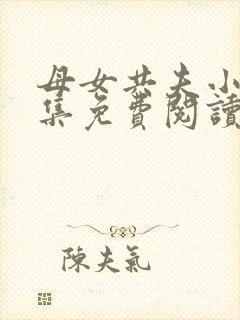 母女共夫小
集免費閱讀
陳夫氣